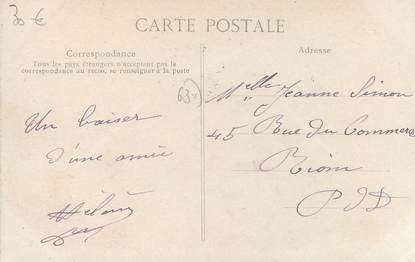 30 €
CARTE POSTALE
Correspondance
Tous les pays étrangers n'acceptent pas la
correspondance au recto, se renseigner à la poste
Un baiser
d'une amie
Adresse
63
Melle Jeanne Simon
45 Rue du Commerce
Riom
P D D